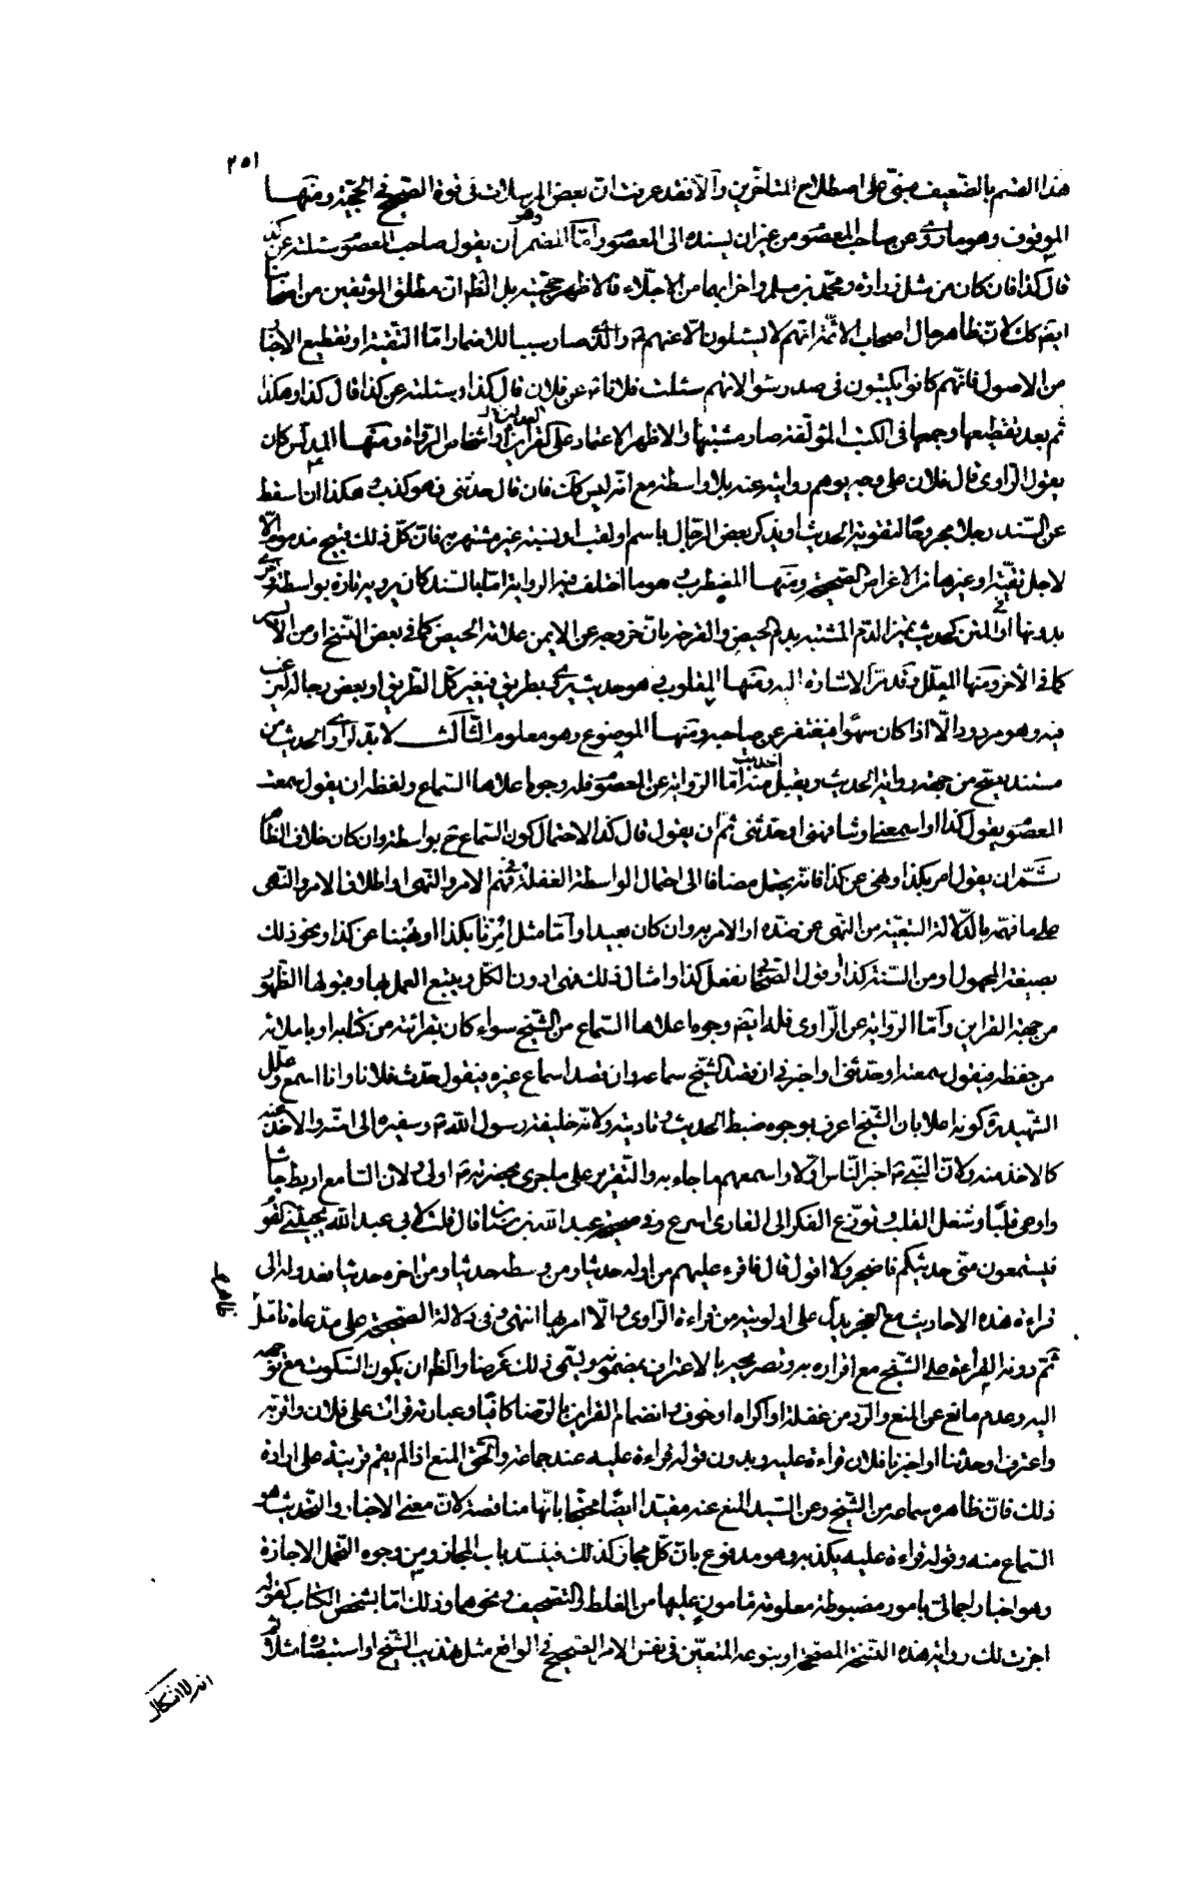 ٢٥١
هذا القسم بالضعيف مبنىّ على اصطلاح المتاخّرين والّا فقد عرفت انّ بعض المرسلات فى قوة الصّحيح فى الحجّية ومنهـا
الموقوف وهو ما روى عن صاحب المعصوم من غير ان يسنده الى المعصوم وامّا المضمر وهو ان يقول صاحب المعصوم سئلته عن كذا
قال كذا فان كان من مثل زرارة ومحمّد بن مسلم واضرابهما من الاجلّاء فالاظهر حجّيته بل الظّ انّ مطلق الموثقين من اصحابنا
ايضم كك لانّ ظاهر حال اصحاب الائمّة انهم لا يسئلون الّا عنهم والّذى صار سببا للاضمار امّا التقية او تقطيع الاخبار
من الاصول فانّهم كانوا يكتبون فى صدر سئوالاتهم سئلت فلانا عن فلان قال كذا وسئلته عن كذا قال كذا وهكذا
ثم بعد تقطيعها وجمعها فى الكتب المؤلّفة صار مشتبها والاظهر الاعتماد على القراين واشخاص الرّواة ومنهـا المدلّس كان
يقول الرّاوى قال فلان على وجه يوهم روايته عنه بلا واسطة مع انّه ليس كك فان قال حدثنى فهو كذب وهكذا ان اسقط
عن السّند رجلا مجروحا لتقوية الحديث او يذكر بعض الرّجال باسم او لقب او نسبة غير مشتهر به فانّ كلّ ذلك قبيح مذموم الّا
لاجل تقيّة او غيرها من الاغراض الصّحيحة ومنهـا المضطرب وهو ما اختلف فيه الرواية امّا بالسّند كان يرويه تارة بواسطة واخرى
بدونها او فى المتن كحديث تميز الدّم المشتبه بدم الحيض والقرحة بان خروجه عن الايمن علامة الحيض كما فى بعض النّسخ او من الايسر
كما فى الاخر ومنها المعلّل وقد مرّ الاشارة اليه ومنهـا المقلوب وهو حديث يروى بطريق فيغير كلّ الطّريق او بعض رجاله ليرغب
فيه وهو مردود الّا اذا كان سهوا فيغتفر عن صاحبه ومنهـا الموضوع وهو معلوم الثّالث لا بدّ لراوى الحديث من
مستند يصحّ من جهته رواية الحديث ويقبل منه امّا الرّواية عن المعصوم فله وجوه اعلاها السّماع ولفظه ان يقول سمعت
المعصوم يقول كذا او اسمعنى او شافهنى او حدّثنى ثمّ ان يقول قال كذا لاحتمال كون السّماع ح بواسطة وان كان خلاف الظّاهر
ثـمّ ان يقول امر بكذا ونهى عن كذا فانّه يحتمل مضافا الى احتمال الواسطة الغفلة فى فهم الامر والنّهى او اطلاق الامر والنّهى
على ما فهمه بالدّلالة التبعيّة من النّهى عن ضدّه او الامر به وان كان بعيدا وامّا مثل اُمِرنا بكذا او نُهينا عن كذا ونحو ذلك
بصيغة المجهول او من السّنة كذا او قول الصّحابى كنا نفعل كذا وامثال ذلك فهى ادون الكلّ ويتبع العمل بها وقبولها الظّهور
من جهة القراين وامّا الرّواية عن الرّاوى فله ايضم وجوه اعلاها السّماع من الشّيخ سواء كان بقرائته من كتابه او باملائه
من حفظه فيقول سمعته او حدّثنى او اخبرنى ان قصد الشّيخ سماعه وان قصد اسماع غيره فيقول حدّث فلانا وانا اسمع وعلّل
الشّهيد ره كونه اعلا بان الشّيخ اعرف بوجوه ضبط الحديث وتاديته ولانّه خليفة رسول اللّه وسفيره الى امّته والاخذ منه
كالاخذ منه ولانّ النّبىّ اخبر النّاس اوّلا واسمعهم ما جاء به والتّقرير على ما جرى بحضرته اولى ولان السّامع اربط جاشا
واوعى قلبا وشغل القلب وتوزّع الفكر الى القارى اسرع وفى صحيحة عبد اللّه بن سنان قال قلت لابى عبد اللّه يجيئنى القوم
فيستمعون منّى حديثكم فاضجر ولا اقوى قال فاقرء عليهم من اوله حديثا ومن وسطه حديثا ومن اخره حديثا فعدوله الى
قراءة هذه الاحاديث مع العجز يدل على اولويته من قراءة الرّاوى والّا امر بها انتهى وفى دلالة الصّحيحة على مدّعاه تامّل
ظاهر
ثمّ دونه القراءة على الشّيخ مع اقراره به وتصريحه بالاعتراف بمضمونه ويسمّى ذلك عَرضا والظّ ان يكون السّكوت مع توجّهه
اليه وعدم مانع عن المنع والرّد من غفلة او اكراه او خوف وانضمام القراين بالرّضا كافيا وعبارته قرات على فلان واقرّ به
واعترف او حدثنا او اخبرنا فلان قراءة عليه وبدون قوله قراءة عليه عند جماعة والحقّ المنع اذا لم يقم قرينة على ارادة
ذلك فانّ ظاهره سماعه من الشّيخ وعن السّيد المنع عنه مقيّدا ايضًا محتجّا بانّها مناقضة لانّ معنى الاخبار والتّحديث هو
السّماع منه وقوله قراءة عليه يكذبه وهو مدفوع بانّ كلّ مجاز كذلك فينسدّ باب المجاز ومن وجوه التّحمل الاجازة
وهو اخبار اجمالىّ بامور مضبوطة معلومة مامون عليها من الغلط والتّصحيف ونحوهما وذلك امّا بشخص الكتاب كقوله
اجزت لك رواية هذه النّسخة المصحّحة او بنوعه المتعيّن فى نفس الامر الصّحيح فى الواقع مثل تهذيب الشّيخ او استبصاره مثلا ثم
انه لا اشكال